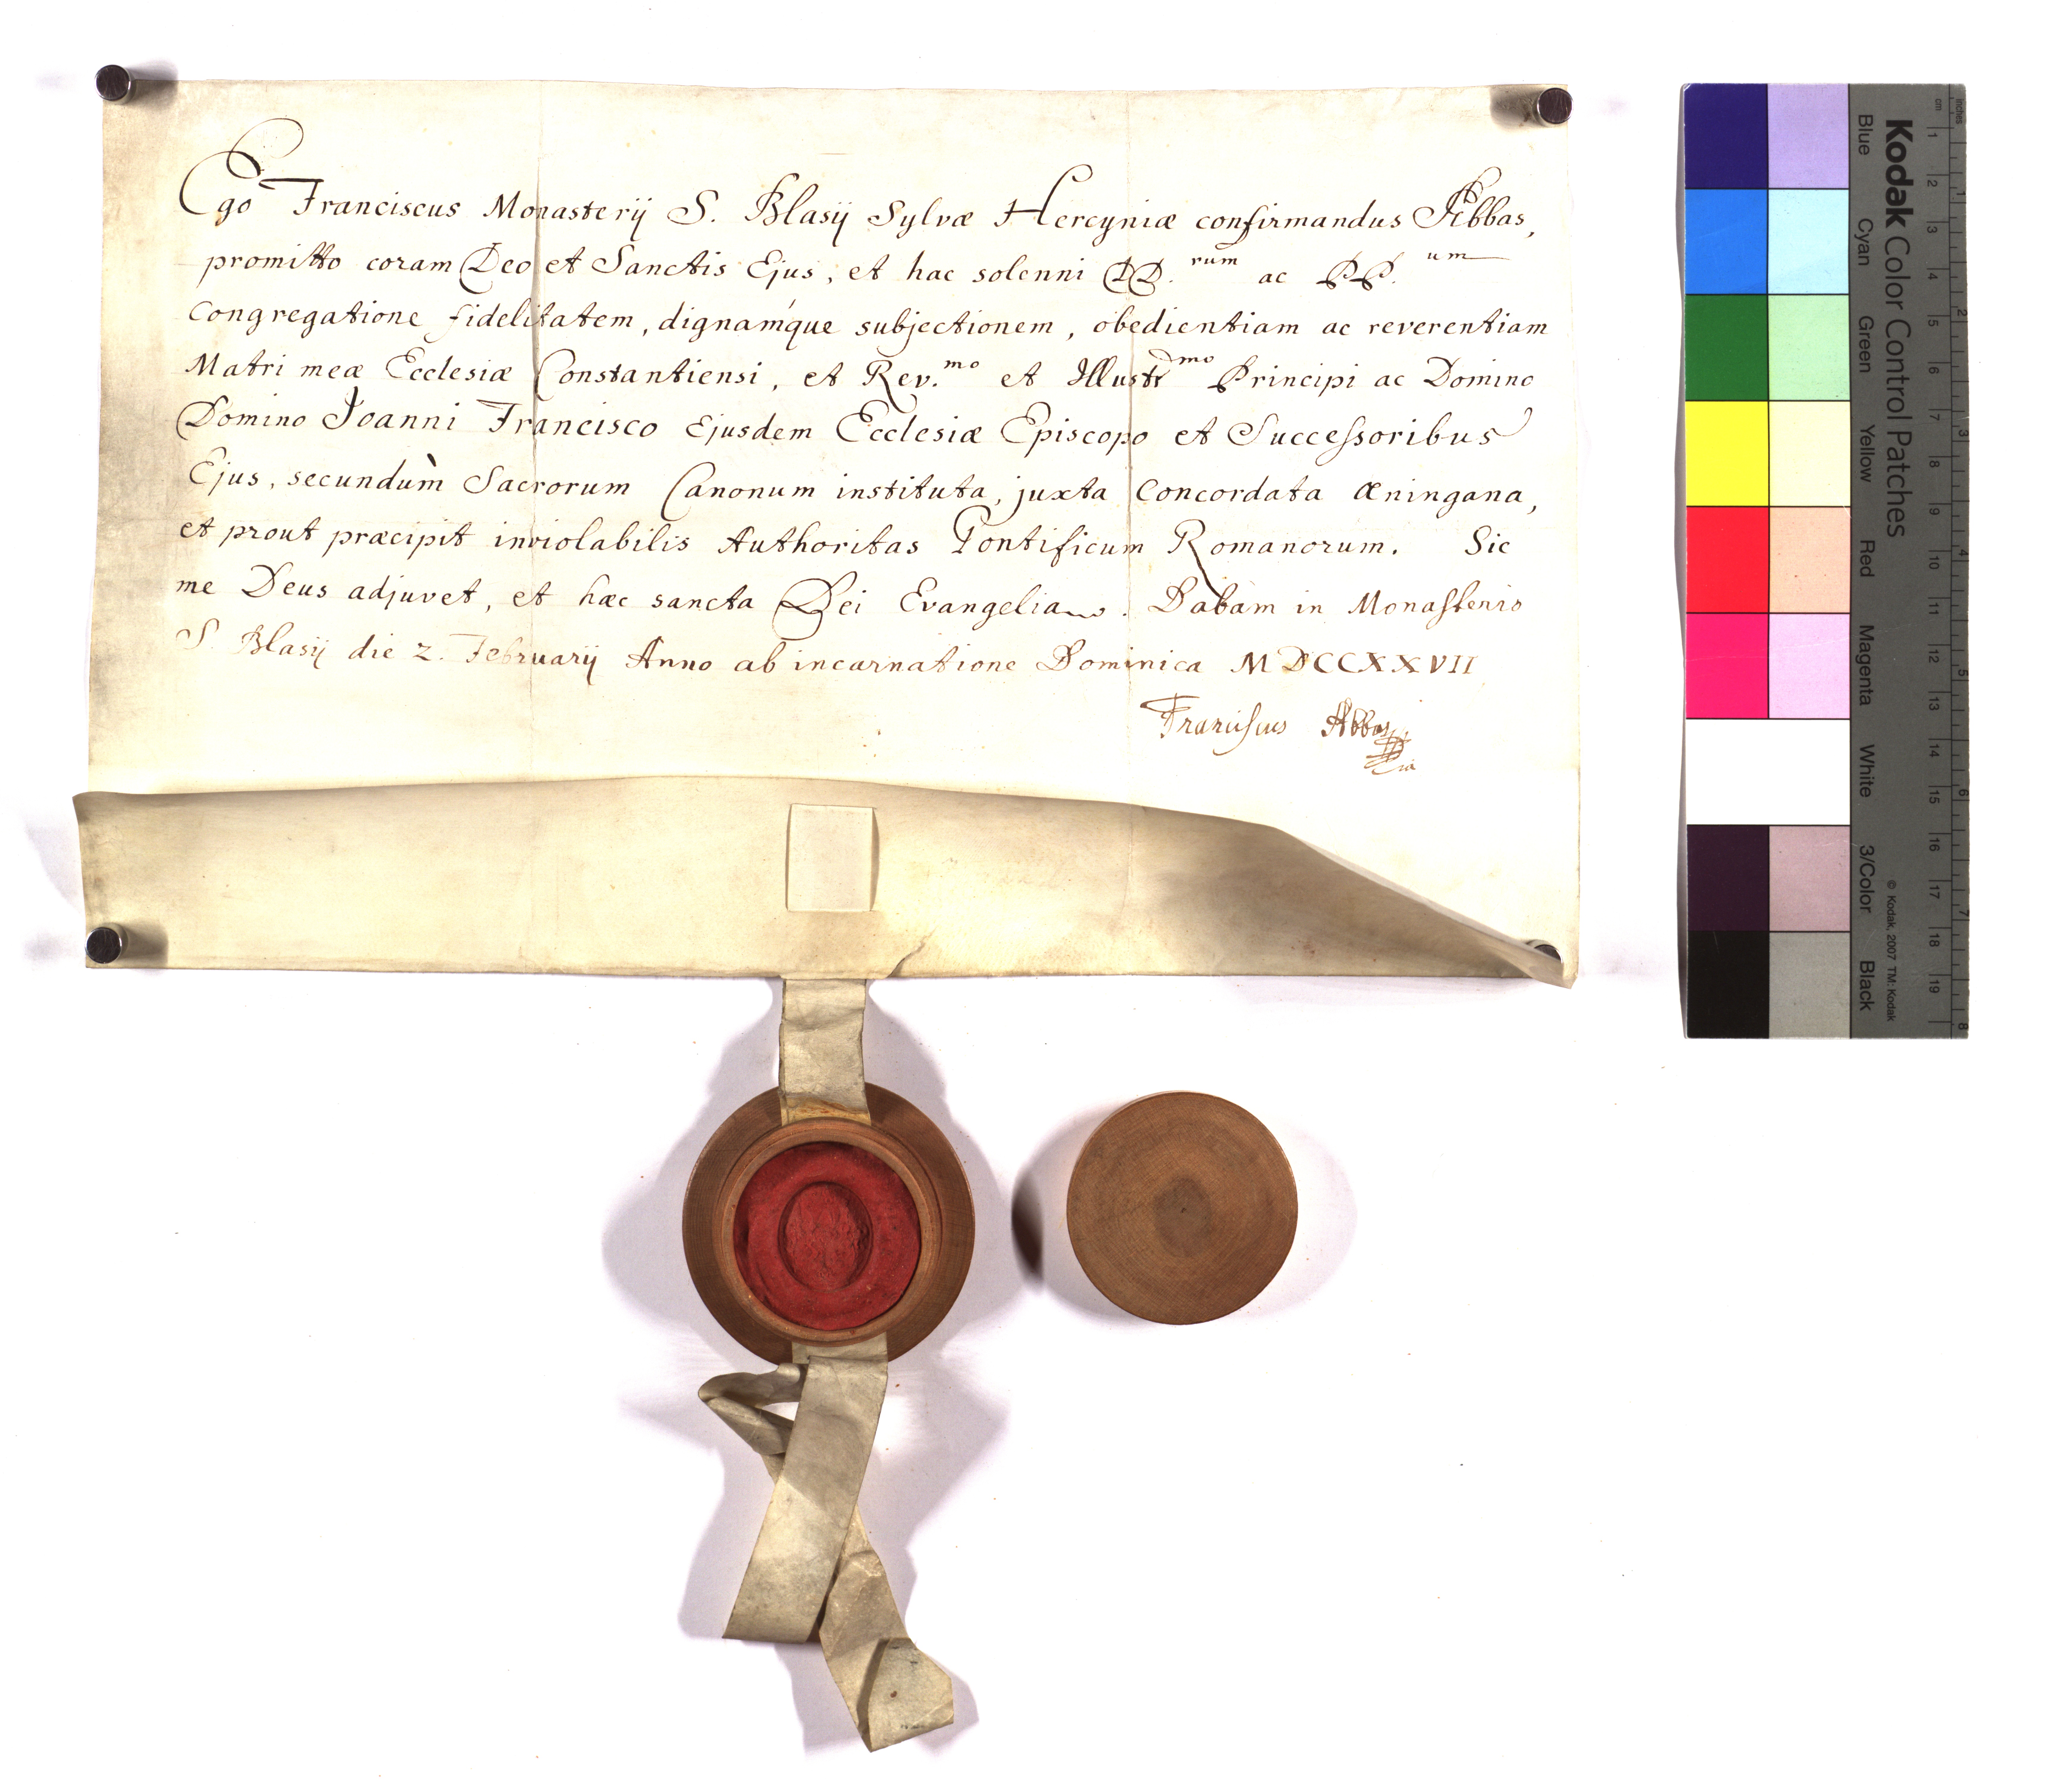 Ego Franciscus Monasterij S. Blasij Sylvæ Hercyniæ confirmandus Abbas,
promitto coram Deo et Sanctis Ejus, et hac solenni DD.rum ac PP.um
Congregatione fidelitatem, dignámque subjectionem, obedientiam ac reverentiam
Matri meæ Ecclesiæ Constantiensi, et Rev.mo et Illustrmo Principi ac Domino
Domino Joanni Francisco Ejusdem Ecclesiæ Episcopo et Successoribus
Ejus, secundùm Sacrorum Canonum instituta, juxta Concordata Æningana,
et prout præcipit inviolabilis Authoritas Pontificum Romanorum. Sic
me Deus adjuvet, et hæc sancta Dei Evangelia. Dabam in Monasterio
S. Blasij die 2. Februarij Anno ab incarnatione Dominica MDCCXXVII
Franciscus Abbas
Kodak Color Control Patches
Blue Cyan Green Yellow Red Magenta White 3/Color Black
© Kodak, 2007 TM: Kodak
cm 1 2 3 4 5 6 7 8 9 10 11 12 13 14 15 16 17 18 19
inches 1 2 3 4 5 6 7 8